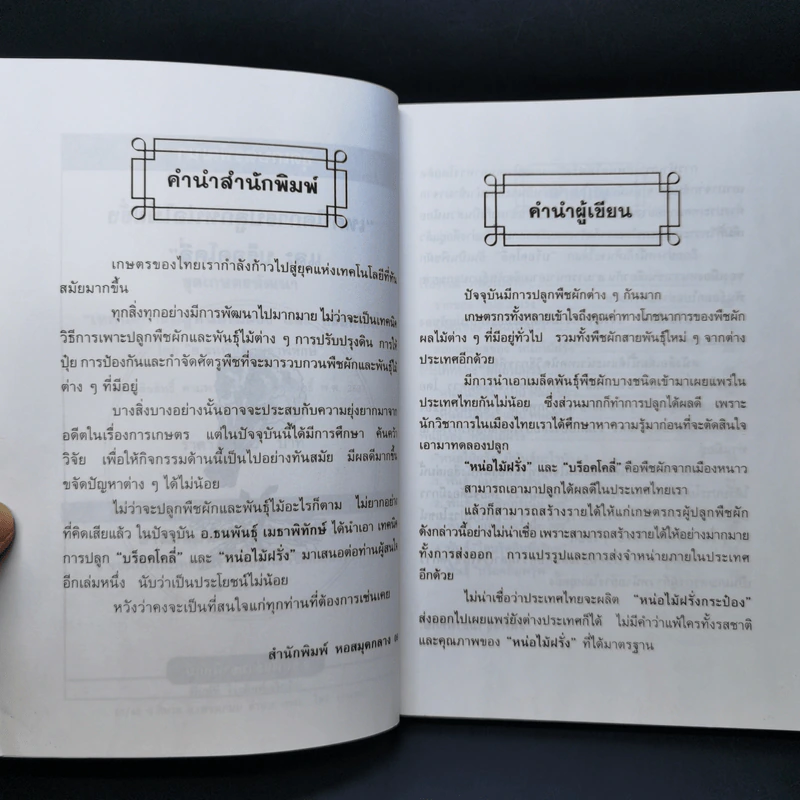 คำนำสำนักพิมพ์
เกษตรของไทยเรากำลังก้าวไปสู่ยุคแห่งเทคโนโลยีที่ทัน
สมัยมากขึ้น
ทุกสิ่งทุกอย่างมีการพัฒนาไปมากมาย ไม่ว่าจะเป็นเทคนิค
วิธีการเพาะปลูกพืชผักและพันธุ์ไม้ต่าง ๆ การปรับปรุงดิน การให้
ปุ๋ย การป้องกันและกำจัดศัตรูพืชที่จะมารบกวนพืชผักและพันธุ์ไม้
ต่าง ๆ ที่มีอยู่
บางสิ่งบางอย่างนั้นอาจจะประสบกับความยุ่งยากมาจาก
อดีตในเรื่องการเกษตร แต่ในปัจจุบันนี้ได้มีการศึกษา ค้นคว้า
วิจัย เพื่อให้กิจกรรมด้านนี้เป็นไปอย่างทันสมัย มีผลดีมากขึ้น
ขจัดปัญหาต่าง ๆ ได้ไม่น้อย
ไม่ว่าจะปลูกพืชผักและพันธุ์ไม้อะไรก็ตาม ไม่ยากอย่าง
ที่คิดเสียแล้ว ในปัจจุบัน อ.ธนพันธุ์ เมธาพิทักษ์ ได้นำเอา เทคนิค
การปลูก "บร็อคโคลี่" และ "หน่อไม้ฝรั่ง" มาเสนอต่อท่านผู้สนใจ
อีกเล่มหนึ่ง นับว่าเป็นประโยชน์ไม่น้อย
หวังว่าคงจะเป็นที่สนใจแก่ทุกท่านที่ต้องการเช่นเคย
สำนักพิมพ์ หอสมุดกลาง
คำนำผู้เขียน
ปัจจุบันมีการปลูกพืชผักต่าง ๆ กันมาก
เกษตรกรทั้งหลายเข้าใจถึงคุณค่าทางโภชนาการของพืชผัก
ผลไม้ต่าง ๆ ที่มีอยู่ทั่วไป รวมทั้งพืชผักสายพันธุ์ใหม่ ๆ จากต่าง
ประเทศอีกด้วย
มีการนำเอาเมล็ดพันธุ์พืชผักบางชนิดเข้ามาเผยแพร่ใน
ประเทศไทยกันไม่น้อย ซึ่งส่วนมากก็ทำการปลูกได้ผลดี เพราะ
นักวิชาการในเมืองไทยเราได้ศึกษาหาความรู้มาก่อนที่จะตัดสินใจ
เอามาทดลองปลูก
"หน่อไม้ฝรั่ง" และ "บร็อคโคลี่" คือพืชผักจากเมืองหนาว
สามารถเอามาปลูกได้ผลดีในประเทศไทยเรา
แล้วก็สามารถสร้างรายได้ให้แก่เกษตรกรผู้ปลูกพืชผัก
ดังกล่าวนี้อย่างไม่น่าเชื่อ เพราะสามารถสร้างรายได้ให้อย่างมากมาย
ทั้งการส่งออก การแปรรูปและการส่งจำหน่ายภายในประเทศ
อีกด้วย
ไม่น่าเชื่อว่าประเทศไทยจะผลิต "หน่อไม้ฝรั่งกระป๋อง"
ส่งออกไปเผยแพร่ยังต่างประเทศก็ได้ ไม่มีคำว่าแพ้ใครทั้งรสชาติ
และคุณภาพของ "หน่อไม้ฝรั่ง" ที่ได้มาตรฐาน